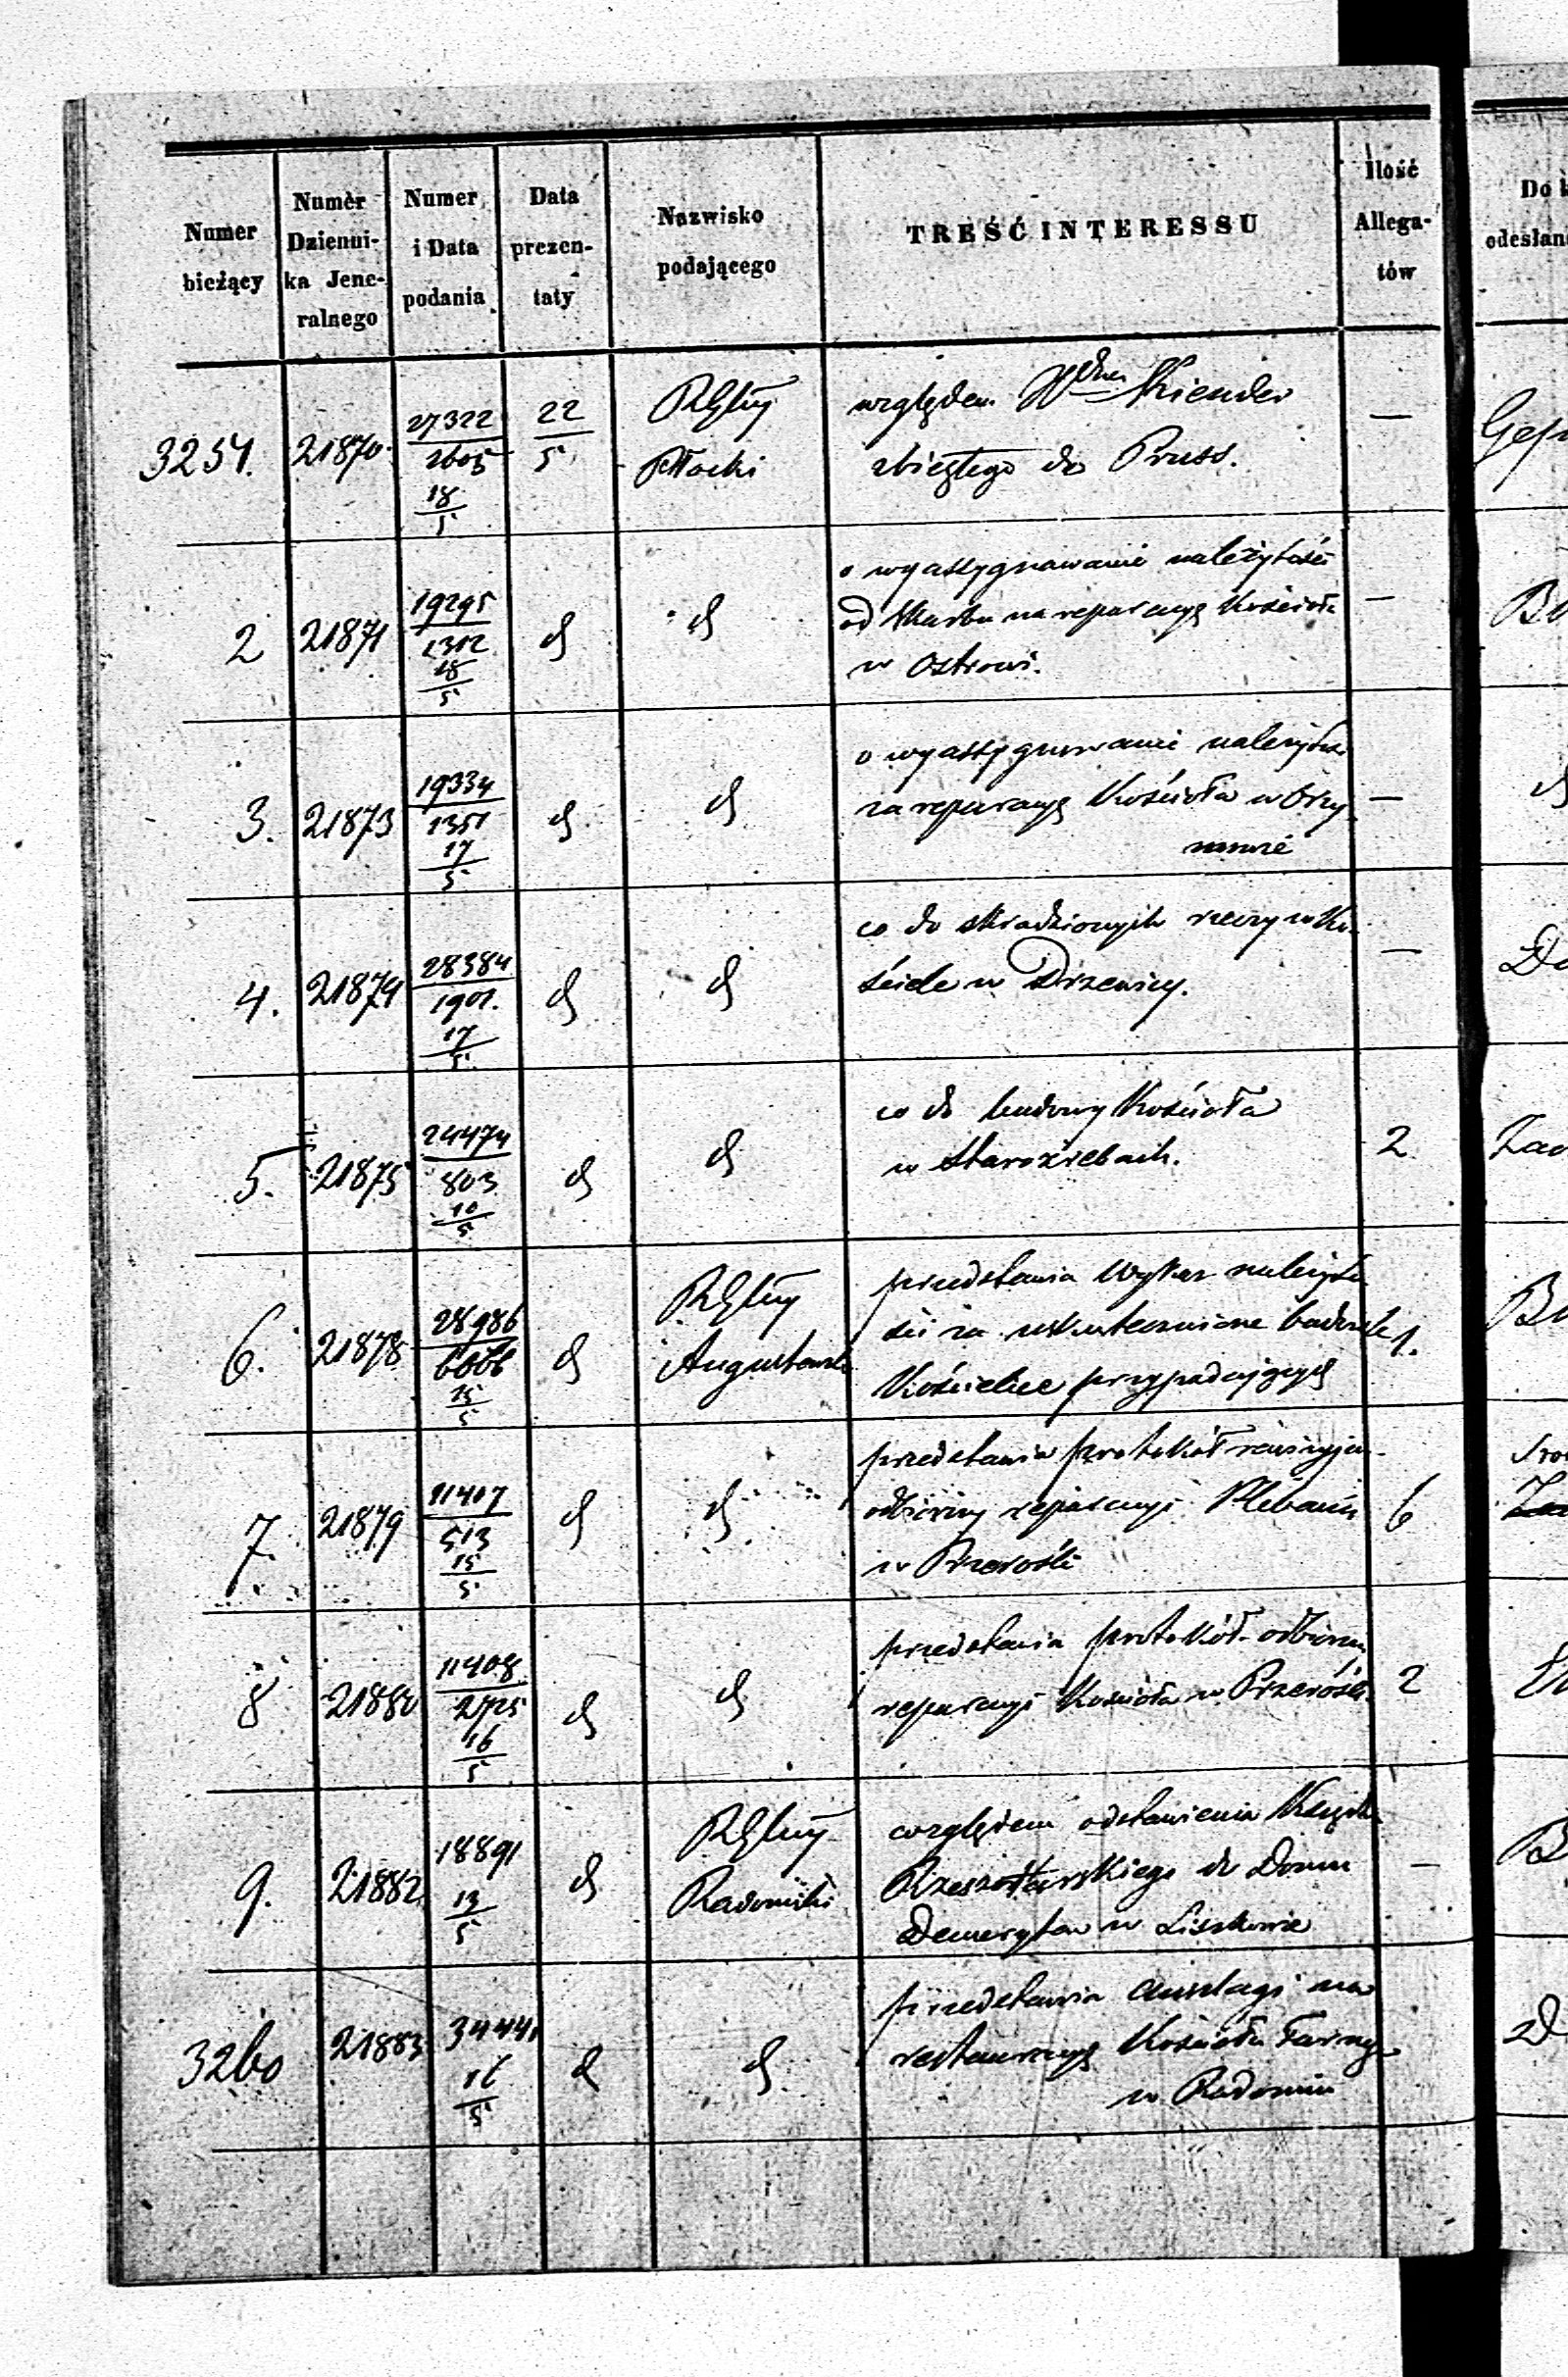 Numer bieżący
Numer Dzienni-ka Jene-ralnego
Numer i Data podania
Data prezen-taty
Nazwisko podającego
TREŚĆ INTERESSU
Ilość Allega-tów
Do k
odesłan
3251. 21870. 27322 2605 18/5 22/5
Płocki
względem
zbiegłego do Pruss.
—
2 21871 19295 1312 18/5 d d
o wyassygnowanie należytości
od Skarbu na reparacyę Kościoła
w Ostrowi.
—
3. 21873 19334 1351 17/5 d d
o wyassygnowanie należytości
za reparacyę Kościoła w
—
4. 21874 28384 1901. 17/5 d d
co do skradzionych rzeczy w Ko-
ściele w Drzewicy.
—
5. 21875 24474 803 10/5 d d
co do budowy Kościoła
w Staroźrebach.
2
6. 21878 28986 6066 15/5 d
Augustowski
przedstawia wykaz należyto
ści za uskutecznione budowle
Kościelne przypadających
1.
7. 21879 11407 513 15/5 d d
przedstawia protokół rewizyjno
odbiorczy reparacyi Plebanii
w Przerośli
6
8 21880 11408 2725 16/5 d d
przedstawia protokół odbiorczy
reparacyi Kościoła w Przerośli
2
9. 21882 18891 13/5 d
Radomski
względem odstawienia Księdza
Rzeszotarskiego do Domu
Demerytów w Liszkowie
—
3260 21883 34441 16/5 d d
przedstawia anszlagi na
restauracyę Kościoła Farnego
w Radomiu